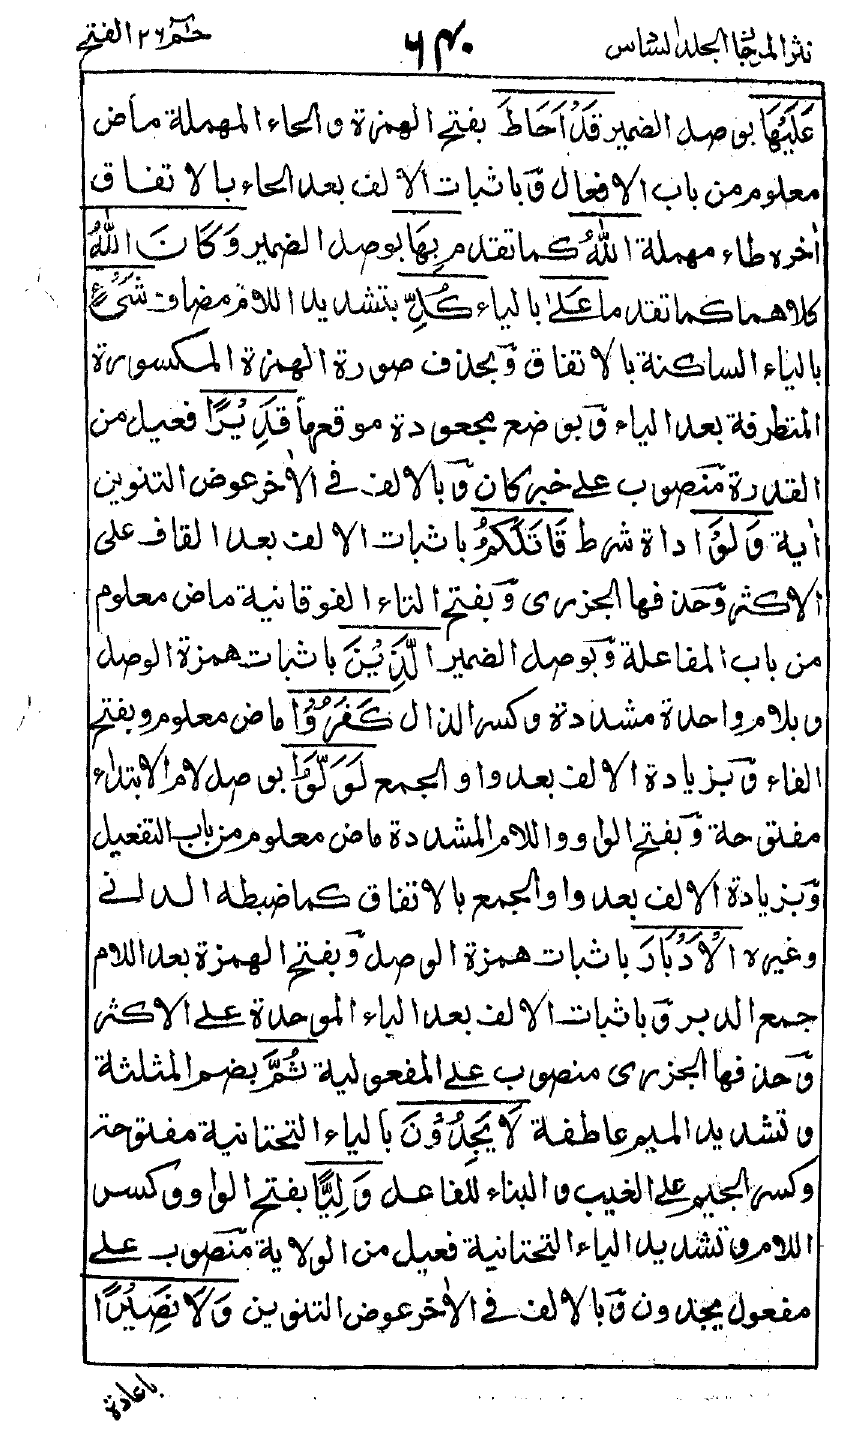 نثر المرجان الجلد السادس ٦٤٠ حٰمٓ ٢٦ الفتح
عَلَيْهَا بوصل الضمير قَدْ اَحَاطَ بفتح الهمزة والحاء المهملة ماض
معلوم من باب الافعال وباثبات الالف بعد الحاء بالاتفاق
اٰخره طاء مهملة اللّٰهُ كما تقدم بِهَا بوصل الضمير وَكَانَ اللّٰهُ
كلاهما كما تقدما عَلٰى بالياء كُلِّ بتشديد اللام مضاف شَيْءٍ
بالياء الساكنة بالاتفاق وبحذف صورة الهمزة المكسورة
المتطرفة بعد الياء وبوضع مجعودة موقعها قَدِيْرًا فعيل من
القدرة منصوب على خبر كان وبالالف فى الاٰخر عوض التنوين
اٰية وَلَوْ اداة شرط قَاتَلَكُمُ باثبات الالف بعد القاف على
الاكثر وحذفها الجزرى وبفتح التاء الفوقانية ماض معلوم
من باب المفاعلة وبوصل الضمير الَّذِيْنَ باثبات همزة الوصل
وبلام واحدة مشددة وكسر الذال كَفَرُوْا ماض معلوم وبفتح
الفاء وبزيادة الالف بعد واو الجمع لَوَلَّوُا بوصل لام الابتداء
مفتوحة وبفتح الواو واللام المشددة ماض معلوم من باب التفعيل
وبزيادة الالف بعد واو الجمع بالاتفاق كما ضبطه الدانى
وغيره الْاَدْبَارَ باثبات همزة الوصل وبفتح الهمزة بعد اللام
جمع الدبر وباثبات الالف بعد الباء الموحدة على الاكثر
وحذفها الجزرى منصوب على المفعولية ثُمَّ بضم المثلثة
وتشديد الميم عاطفة لَا يَجِدُوْنَ بالياء التحتانية مفتوحة
وكسر الجيم على الغيب والبناء للفاعل وَلِيًّا بفتح الواو وكسر
اللام وتشديد الياء التحتانية فعيل من الولاية منصوب على
مفعول يجدون وبالالف فى الاٰخر عوض التنوين وَلَا نَصِيْرًا
باعادة